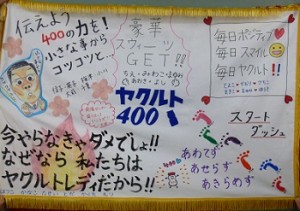 伝えよう
400の力を!
小さな事から
コツコツと…
豪華
スウィーツ
GET!!
ヤクルト
400
毎日ポジティブ
毎日スマイル
毎日ヤクルト!!
スタート
ダッシュ
あわてず
あせらず
あきらめず
今やらなきゃダメでしょ!!
なぜなら 私たちは
ヤクルトレディだから!!